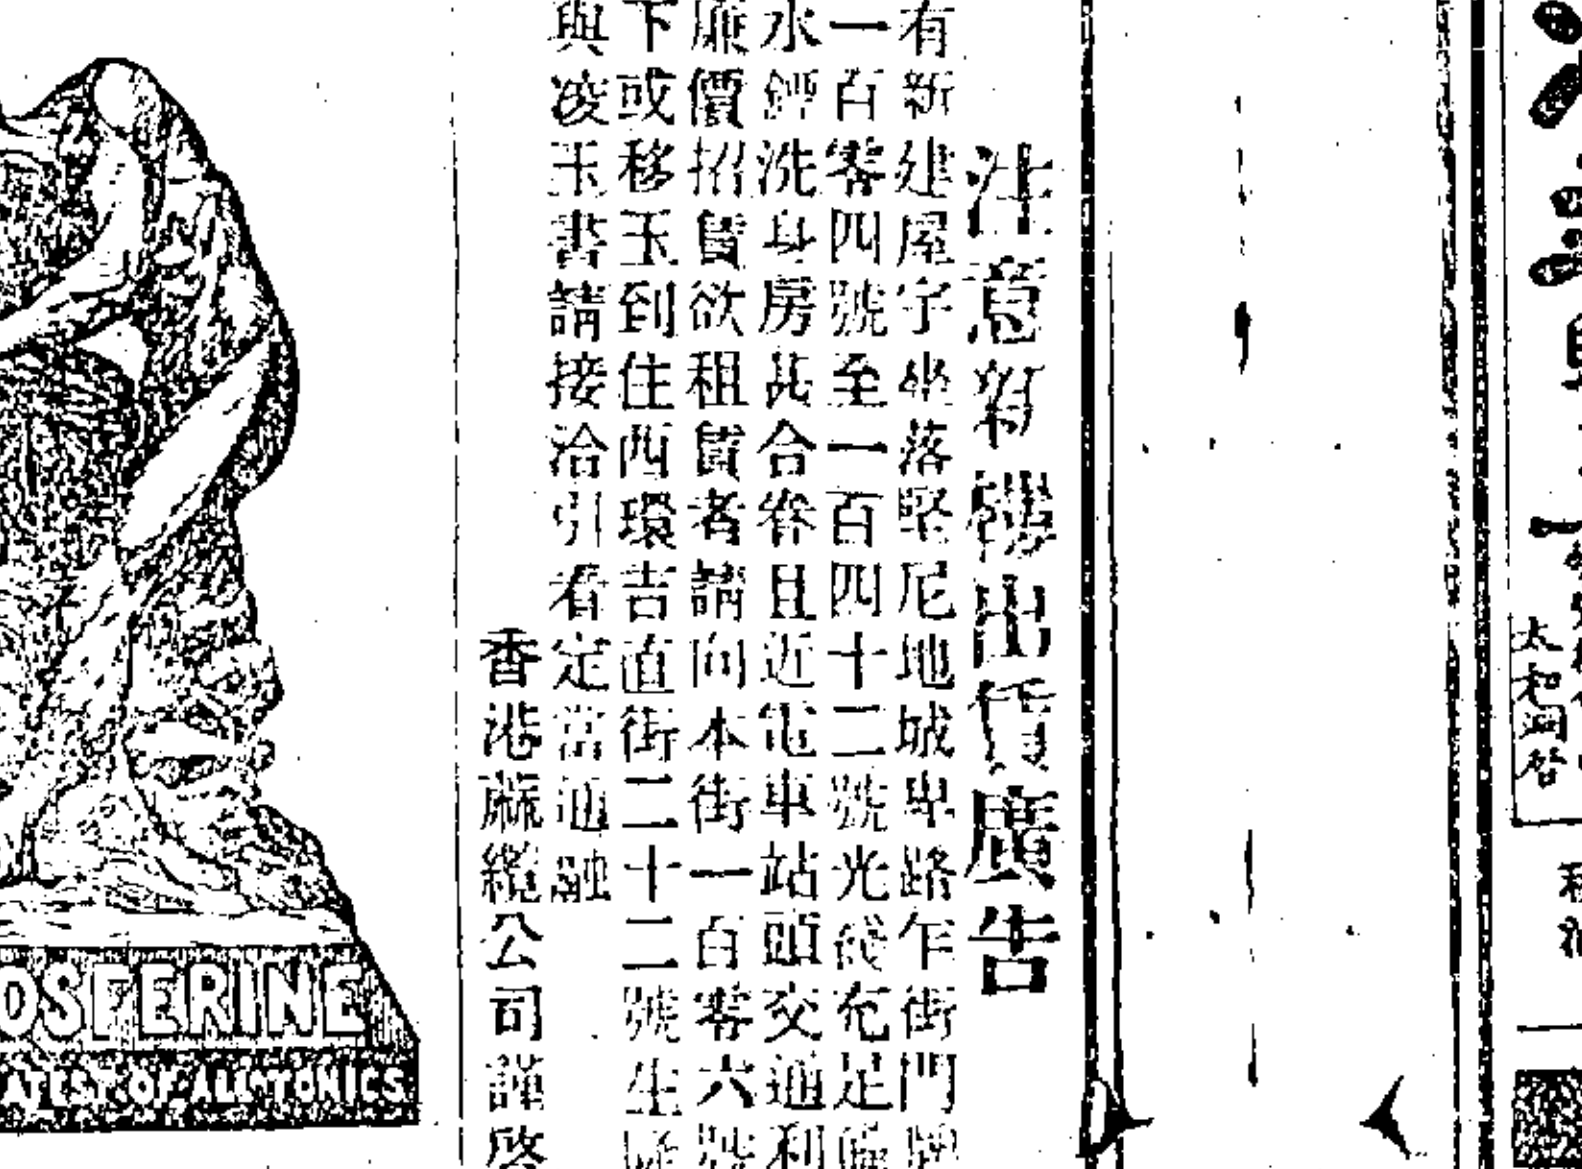 注意新樓出賃廣告
有新建屋宇坐落堅尼地城卑路乍街門牌
一百零四號至一百四十二號光綫充足
水廁洗身房甚合眷且近電車站頭交通利
廉價招賃欲租賃者請向本街一百零六號
下或移玉到住西環吉直街二十二號生
與凌玉書請接洽引看定當通融
香港蔴纜公司謹啓
太和洞啓
OSFERINE
ATEST OF ALL TONICS